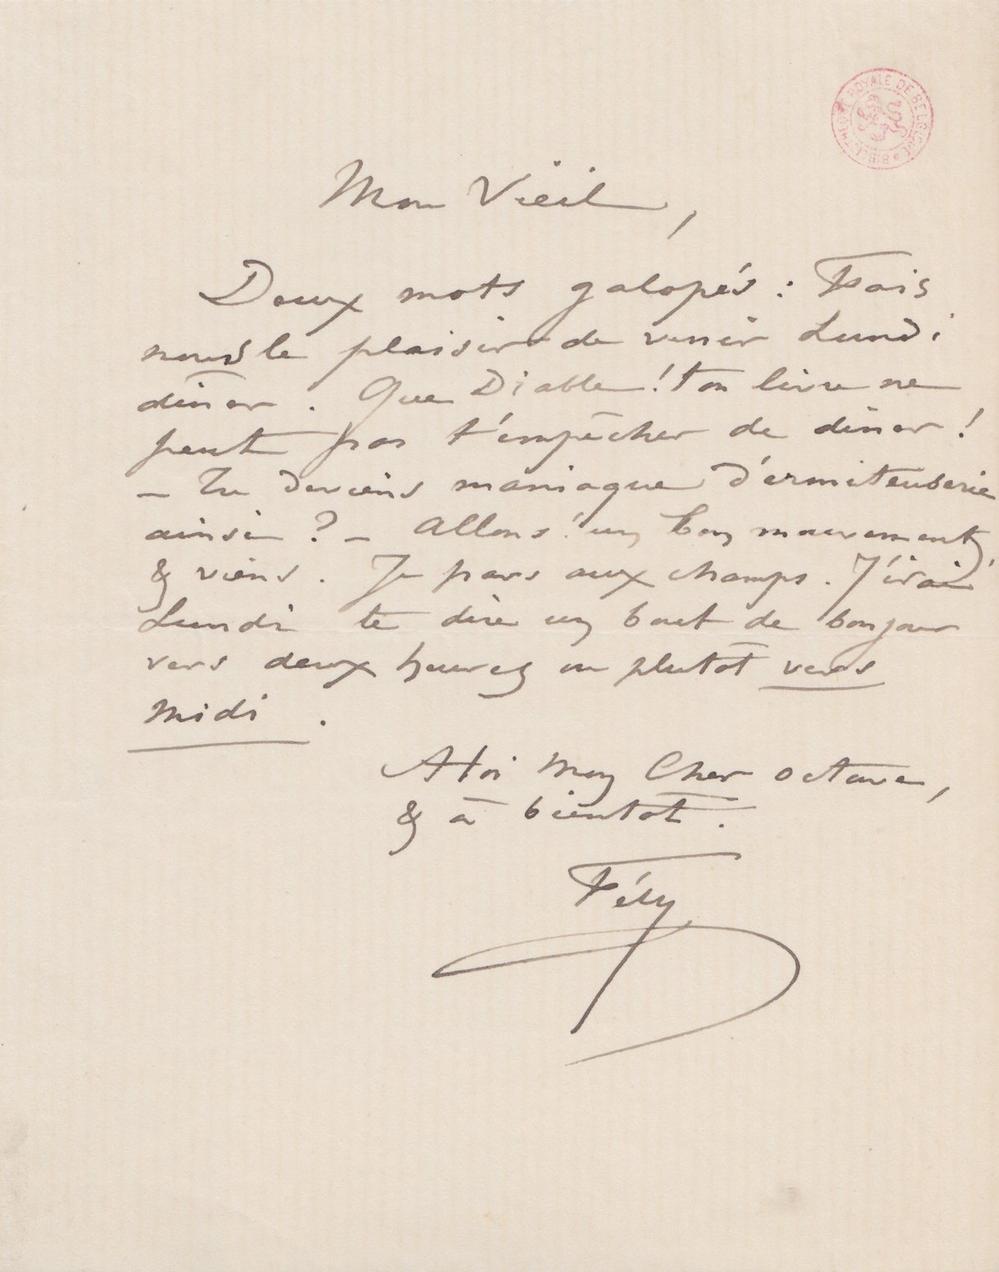 BIBLIOTHÈQUE ROYALE DE BELGIQUE
Mon Vieil,
Deux mots galopés : Fais
nous le plaisir de venir Lundi
dîner. Que Diable ! ton livre ne
peut pas t'empêcher de dîner !
– Tu deviens maniaque d'ermiteuserie
ainsi ? – Allons ! un bon mouvement,
& viens. Je pars aux champs. J'irai
Lundi te dire un bout de bonjour
vers deux heures ou plutôt vers
midi.
A toi Mon Cher Octave,
& à bientôt.
Fély